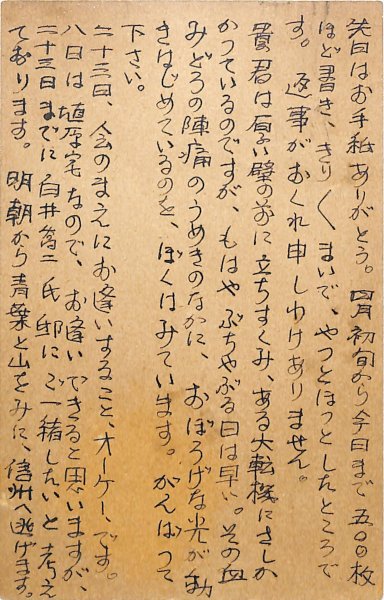 先日はお手紙ありがとう。四月初旬から今日まで五〇〇枚
ほど書き、きり〱まいで、やつとほつとしたところで
す。返事がおくれ申しわけありません。
貴君は厚い壁の前に立ちすくみ、ある大転機にさしか
かつているのですが、もはやぶちやぶる日は早い。その血
みどろの陣痛のうめきのなかに、おぼろげな光が動
きはじめているのを、ぼくはみています。がんばつて
下さい。
二十三日、会のまえにお逢いすること、オーケー、です。
八日は埴谷宅なので、お逢いできると思いますが、
二十三日までに白井 二氏邸に御一緒したいと考え
ております。明朝から青葉と山をみに、信州へ逃げます。